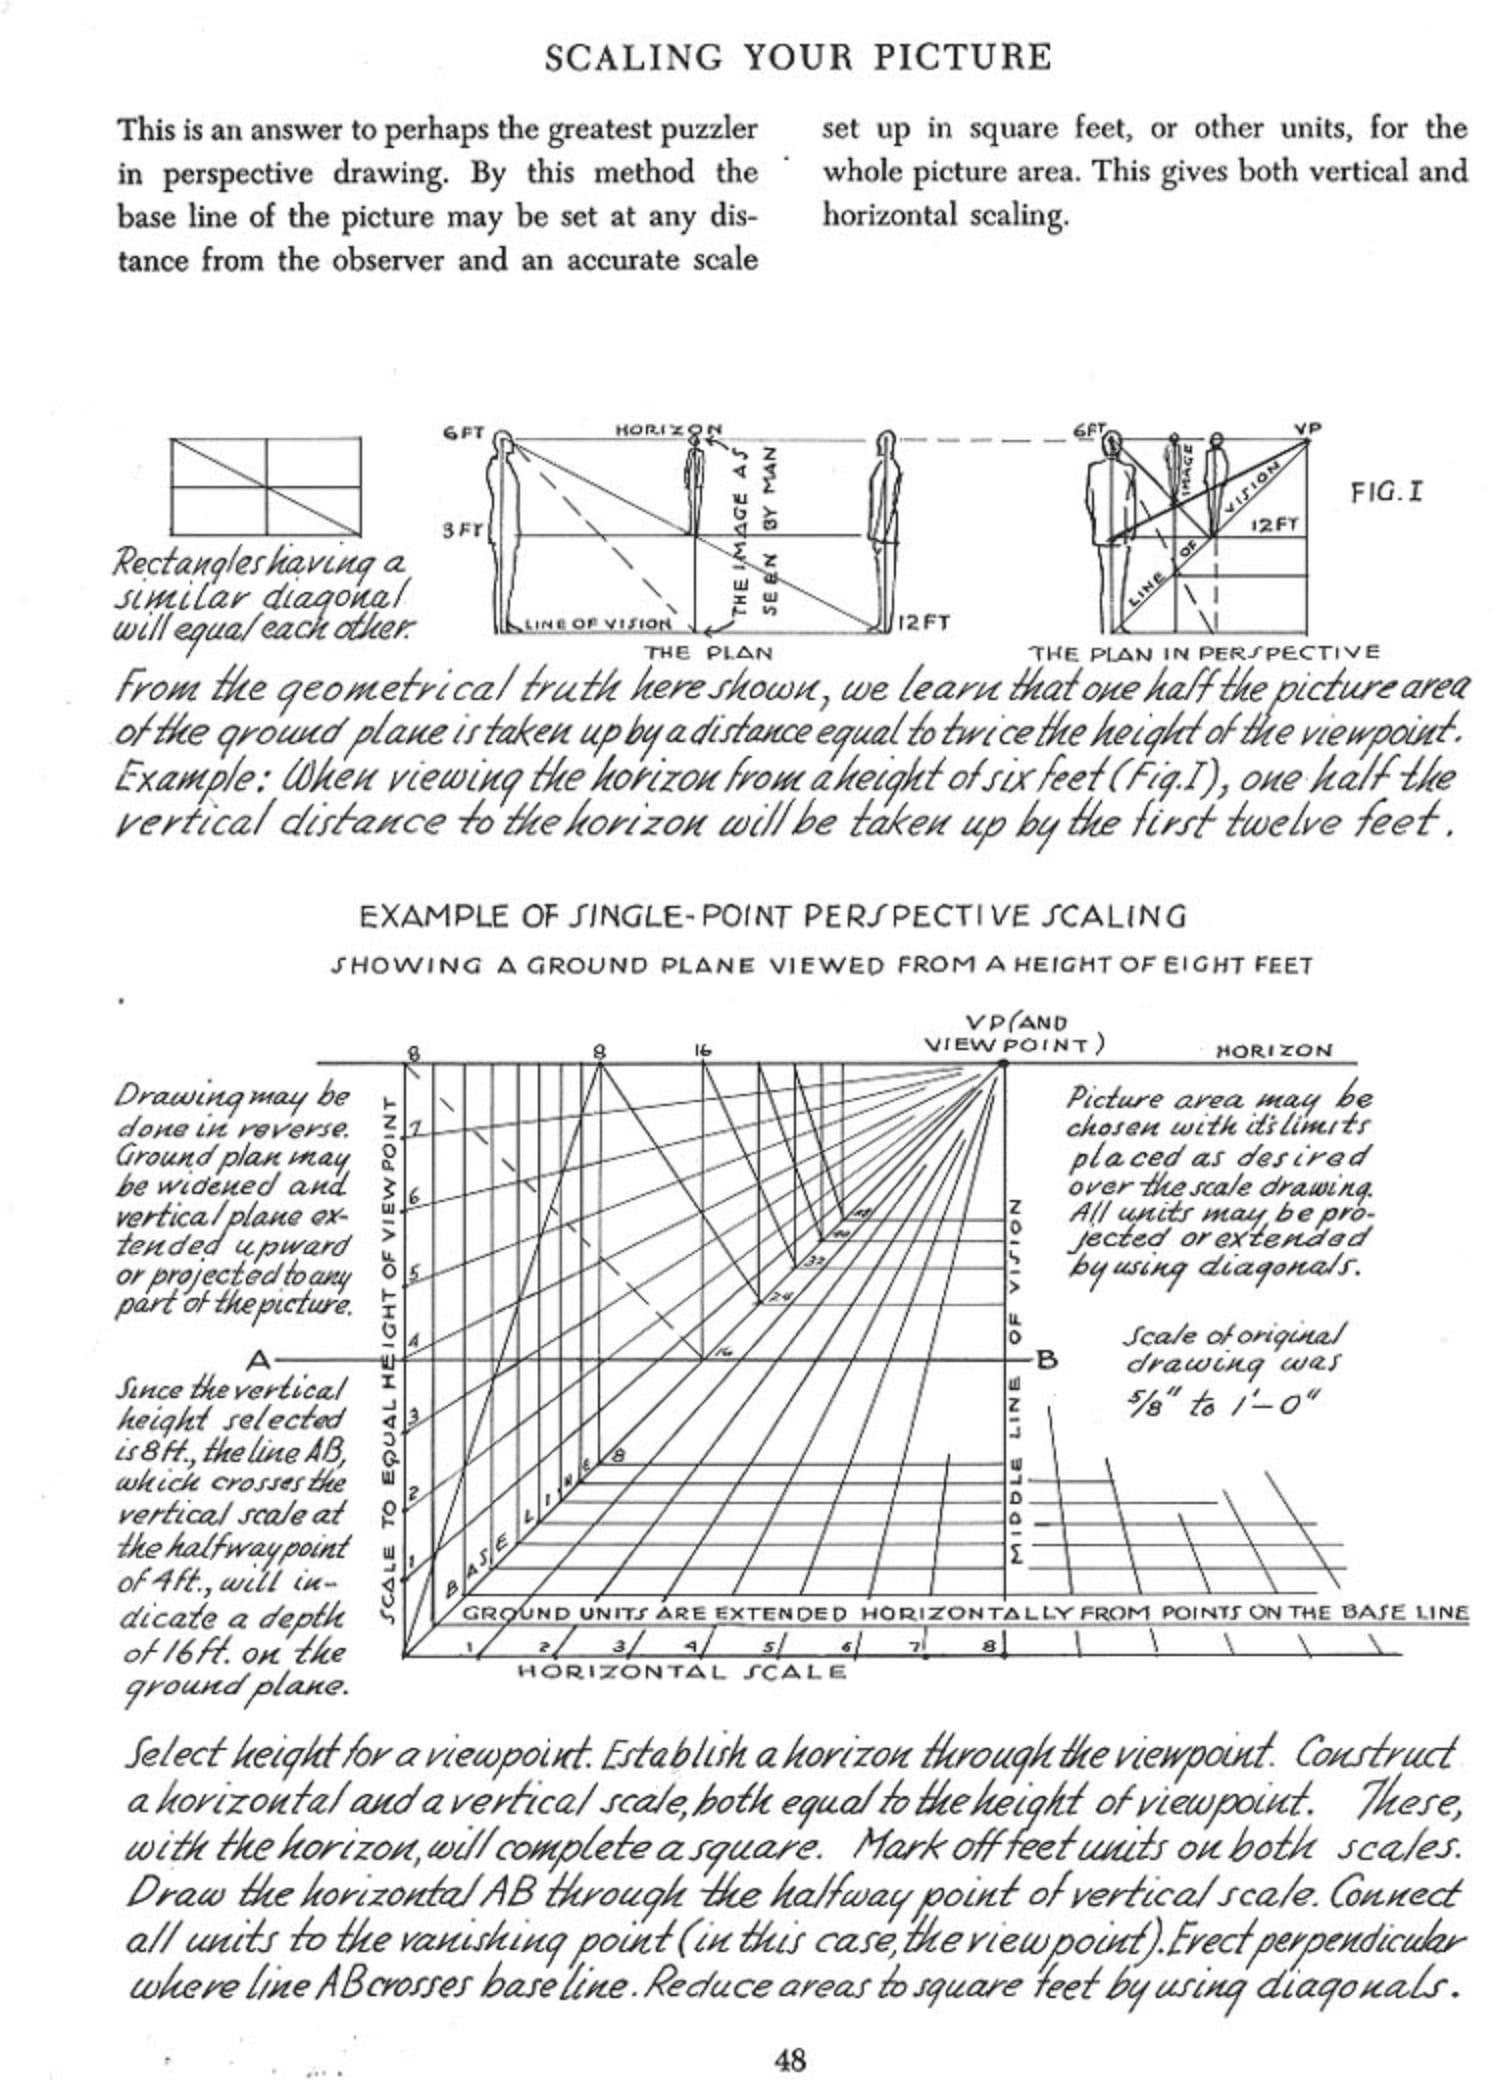 SCALING YOUR PICTURE
This is an answer to perhaps the greatest puzzler
in perspective drawing. By this method the
base line of the picture may be set at any dis-
tance from the observer and an accurate scale
set up in square feet, or other units, for the
whole picture area. This gives both vertical and
horizontal scaling.
Rectangles having a
similar diagonal
will equal each other.
6FT
HORIZON
3FT
THE IMAGE AS
SEEN BY MAN
LINE OF VISION
12FT
THE PLAN
6FT
VP
IMAGE
LINE OF VISION
12FT
FIG. I
THE PLAN IN PERSPECTIVE
From the geometrical truth here shown, we learn that one half the picture area
of the ground plane is taken up by a distance equal to twice the height of the viewpoint.
Example: When viewing the horizon from a height of six feet (Fig. I), one half the
vertical distance to the horizon will be taken up by the first twelve feet.
EXAMPLE OF SINGLE-POINT PERSPECTIVE SCALING
SHOWING A GROUND PLANE VIEWED FROM A HEIGHT OF EIGHT FEET
VP (AND
VIEWPOINT)
HORIZON
8
8
16
Drawing may be
done in reverse.
Ground plan may
be widened and
vertical plane ex-
tended upward
or projected to any
part of the picture.
A
Since the vertical
height selected
is 8ft., the line AB,
which crosses the
vertical scale at
the halfway point
of 4ft., will in-
dicate a depth
of 16ft. on the
ground plane.
SCALE TO EQUAL HEIGHT OF VIEWPOINT
7
6
5
4
3
2
1
48
40
32
24
16
8
BASE LINE
MIDDLE LINE OF VISION
B
Picture area may be
chosen with it's limits
placed as desired
over the scale drawing.
All units may be pro-
jected or extended
by using diagonals.
Scale of original
drawing was
5/8" to 1'-0"
GROUND UNITS ARE EXTENDED HORIZONTALLY FROM POINTS ON THE BASE LINE
1 2 3 4 5 6 7 8
HORIZONTAL SCALE
Select height for a viewpoint. Establish a horizon through the viewpoint. Construct
a horizontal and a vertical scale, both equal to the height of viewpoint. These,
with the horizon, will complete a square. Mark off feet units on both scales.
Draw the horizontal AB through the halfway point of vertical scale. Connect
all units to the vanishing point (in this case, the viewpoint). Erect perpendicular
where line AB crosses base line. Reduce areas to square feet by using diagonals.
48